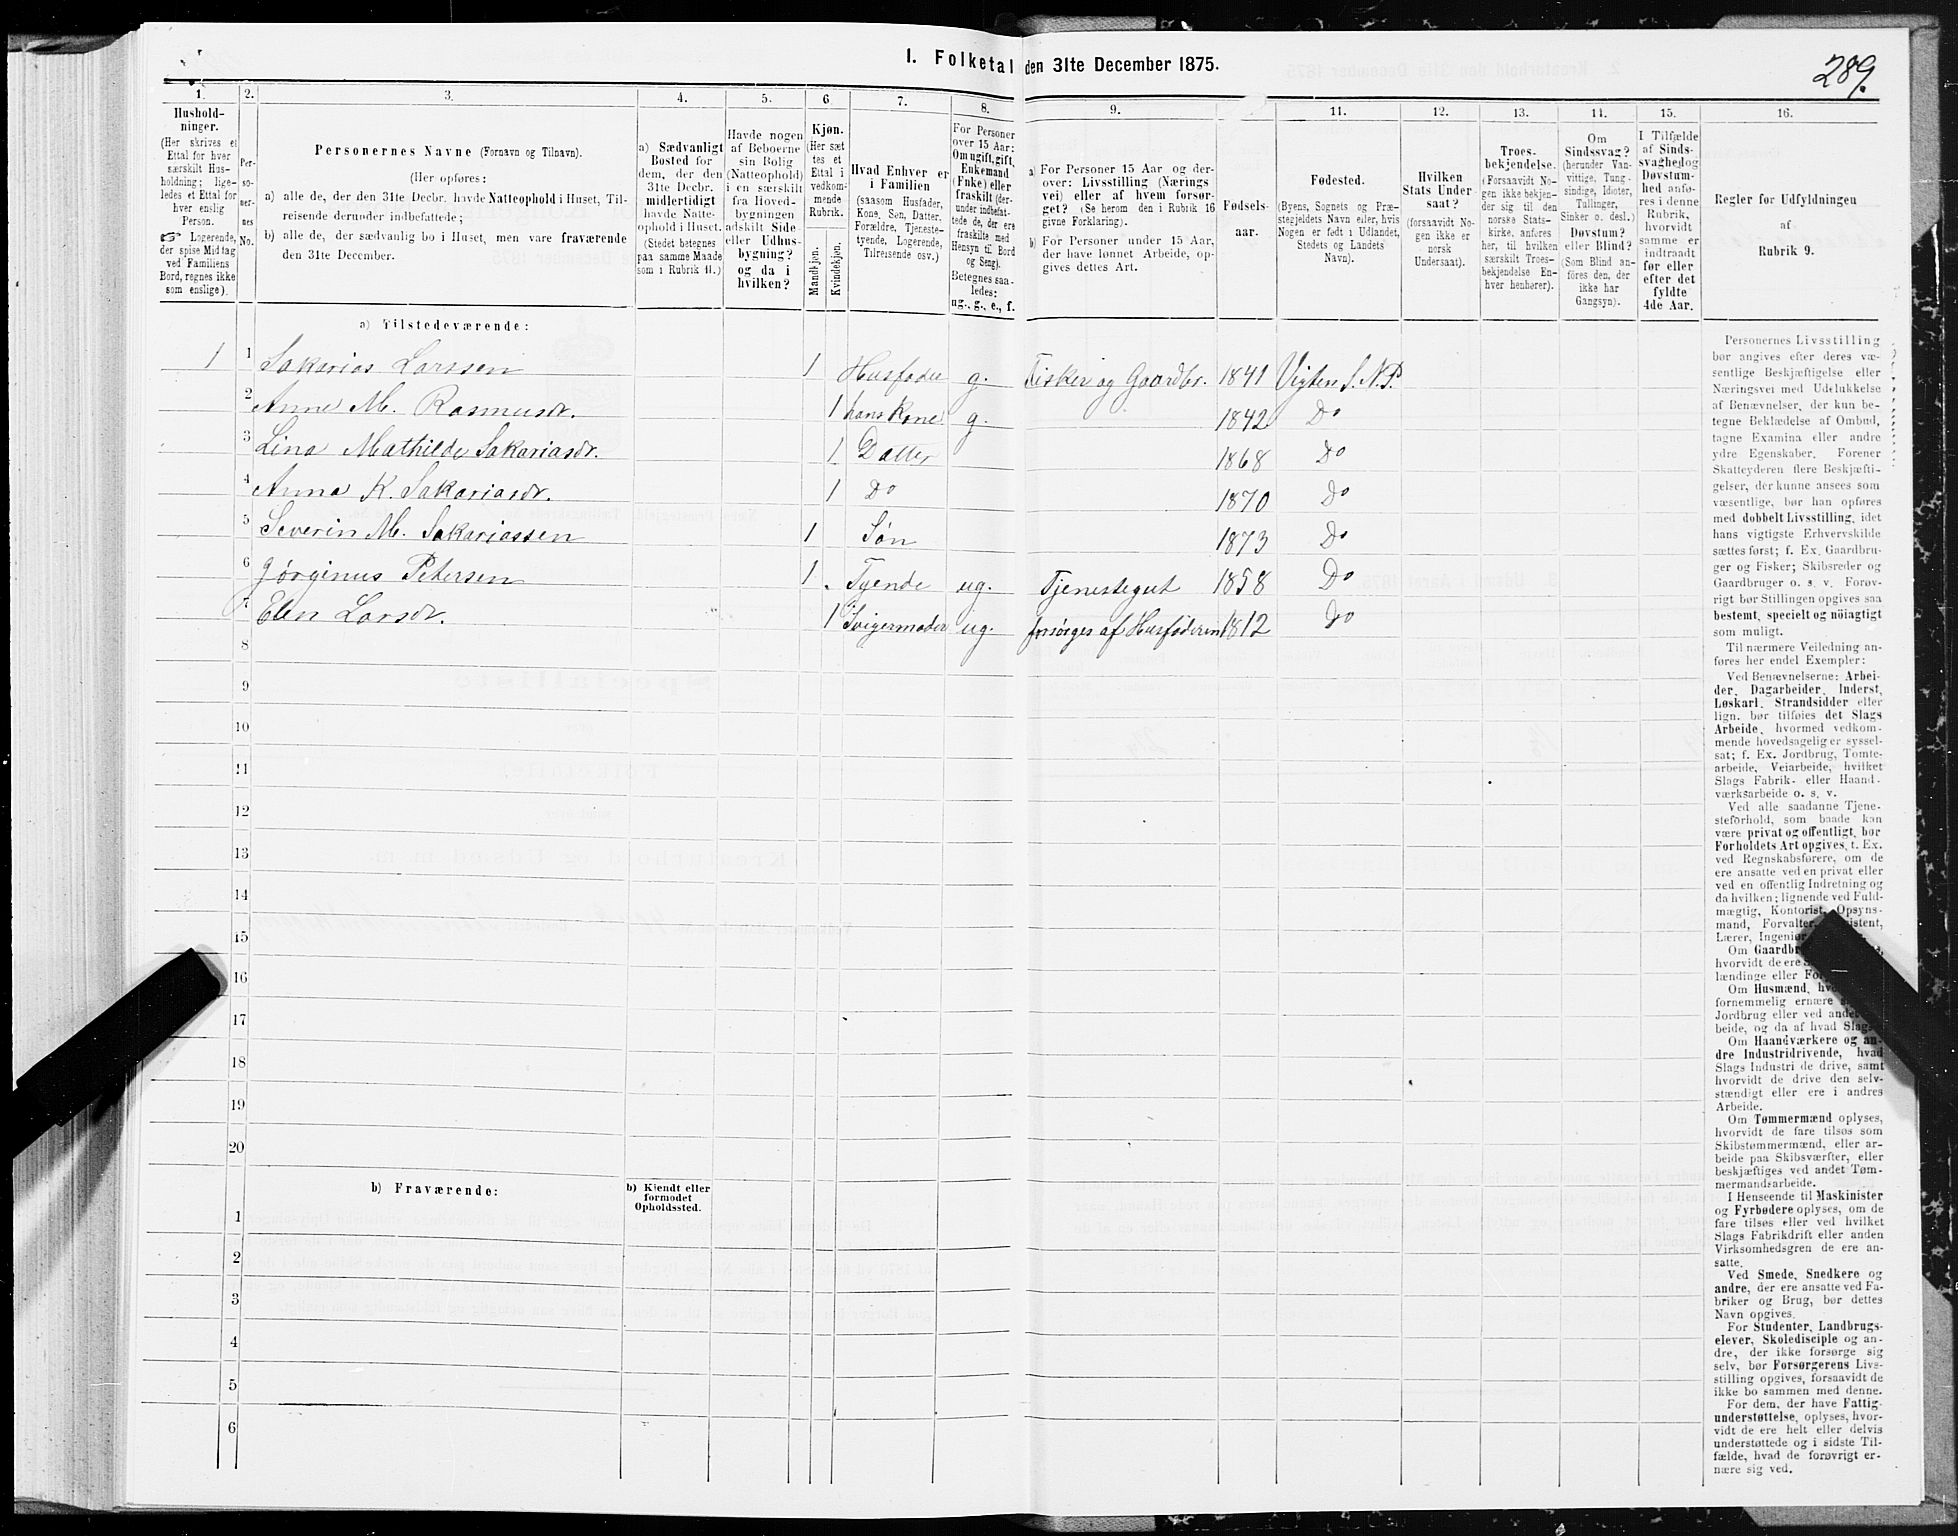 I. Folketal den 31te December 1875.
289.
1. 2. 3. 4. 5. 6. 7. 8. 9. 11. 12. 13. 14. 15. 16.
Hushold-
ninger.
(Her skrives et
Ettal for hver
særskilt Hus-
holdning; lige-
ledes et Ettal for
hver enslig
Person.
☞ Logerende,
der spise Middag
ved Familiens
Bord, regnes ikke
som enslige).
Per-
so-
ner-
nes
No.
Personernes Navne (Fornavn og Tilnavn).
(Her opføres:
a) alle de, der den 31te Decbr. havde Natteophold i Huset, Til-
reisende derunder indbefattede;
b) alle de, der sædvanlig bo i Huset, men vare fraværende
den 31te December.
a) Sædvanligt
Bosted for
dem, der den
31te Decbr.
midlertidigt
havde Natte-
ophold i Huset.
(Stedet betegnes
paa samme Maade
som i Rubrik 11.)
Havde nogen
af Beboerne
sin Bolig
(Natteophold)
i en særskilt
fra Hoved-
bygningen
adskilt Side-
eller Udhus-
bygning?
og da i
hvilken?
Kjøn.
(Her sæt-
tes et
Ettal i
vedkom-
mende
Rubrik.
Mandkjøn.
Kvindekjøn.
Hvad Enhver er
i Familien
(saasom Husfader,
Kone, Søn, Datter,
Forældre, Tjeneste-
tyende, Logerende,
Tilreisende osv.)
For Personer
over 15 Aar:
Om ugift, gift,
Enkemand
(Enke) eller
fraskilt (der-
under indbefat-
tede de, der ere
fraskilte med
Hensyn til Bord
og Seng).
Betegnes saa-
ledes:
ug., g., e., f.
a) For Personer 15 Aar og der-
over: Livsstilling (Nærings-
vei) eller af hvem forsør-
get? (Se herom den i Rubrik 16
givne Forklaring).
b) For Personer under 15 Aar,
der have lønnet Arbeide, op-
gives dettes Art.
Fødsels-
aar.
Fødested.
(Byens, Sognets og Præ-
stegjeldets Navn eller, hvis
Nogen er født i Udlandet,
Stedets og Landets
Navn).
Hvilken
Stats Under-
saat?
(forsaavidt No-
gen ikke er
norsk
Undersaat).
Troes-
bekjendelse.
(Forsaavidt No-
gen ikke bekjen-
der sig til den
norske Stats-
kirke, anføres
her, til hvilken
særskilt Troes-
bekjendelse En-
hver henhører).
Om
Sindssvag?
(herunder Van-
vittige, Tung-
sindige, Idioter,
Tullinger,
Sinker o. desl.)
Døvstum?
eller Blind?
(Som Blind an-
føres den, der
ikke har
Gangsyn).
I Tilfælde
af Sinds-
svaghed og
Døvstum-
hed anfø-
res i denne
Rubrik,
hvorvidt
samme er
indtraadt
før eller
efter det
fyldte
4de Aar.
Regler for Udfyldningen
af
Rubrik 9.
a) Tilstedeværende:
1 1 Sakarias Larssen 1 Husfader g. Fisker og Gaardbr. 1841 Vigten S. N. P.
2 Anne M. Rasmusdr. 1 hans Kone g. 1842 Do
3 Lina Mathilde Sakariasdr. 1 Datter 1868 Do
4 Anna K. Sakariasdr. 1 Do 1870 Do
5 Severin M. Sakariassen 1 Søn 1873 Do
6 Jørginus Petersen 1 Tyende ug. Tjenestegut 1858 Do
7 Elen Larsdr. 1 Svigermoder ug. forsørges af Husfaderen 1812 Do
8
9
10
11
12
13
14
15
16
17
18
19
20
b) Fraværende:
b) Kjendt eller
formodet
Opholdssted.
1
2
3
4
5
6
Personernes Livsstilling
bør angives efter deres væ-
sentlige Beskjæftigelse eller
Næringsvei med Udelukkelse
af Benævnelser, der kun be-
tegne Beklædelse af Ombud,
tagne Examina eller andre
ydre Egenskaber. Forener
Skatteyderen flere Beskjæfti-
gelser, der kunne ansees som
væsentlige, bør han opføres
med dobbelt Livsstilling, idet
hans vigtigste Erhvervskilde
sættes først; f. Ex. Gaardbru-
ger og Fisker; Skibsreder og
Gaardbruger o. s. v. Forøv-
rigt bør Stillingen opgives saa
bestemt, specielt og nøiagtigt
som muligt.
Til nærmere Veiledning an-
føres her endel Exempler:
Ved Benævnelserne: Arbei-
der, Dagarbeider, Inderst,
Løskarl, Strandsidder eller
lign. bør tilføies det Slags
Arbeide, hvormed vedkom-
mende hovedsagelig er syssel-
sat; f. Ex. Jordbrug, Tomte-
arbeide, Veiarbeide, hvilket
Slags Fabrik- eller Haand-
værksarbeide o. s. v.
Ved alle saadanne Tjene-
steforhold, som baade kan
være privat og offentligt, bør
Forholdets Art opgives, t. Ex.
ved Regnskabsførere, om de
ere ansatte ved en privat eller
ved en offentlig Indretning og
da hvilken; lignende ved Fuld-
mægtig, Kontorist, Opsyns-
mand, Forvalter,
Lærer,
Om
hvorvidt de ere
lændinge eller
Om Husmænd,
fornemmelig ernære
Jordbrug eller ved
beide, og da af hvad Slags
Om Haandværkere og an-
dre Industridrivende, hvad
Slags Industri de drive, samt
hvorvidt de drive den selv-
stændigt eller ere i andres
Arbeide.
Om Tømmermænd oplyses,
hvorvidt de fare tilsøs som
Skibstømmermænd, eller ar-
beide paa Skibsværfter, eller
beskjæftiges ved andet Tøm-
mermandsarbeide.
I Henseende til Maskinister
og Fyrbødere oplyses, om de
fare tilsøs eller ved hvilket
Slags Fabrikdrift eller anden
Virksomhedsgren de ere an-
satte.
Ved Smede, Snedkere og
andre, der ere ansatte ved Fa-
briker og Brug, bør dettes
Navn opgives.
For Studenter, Landbrugs-
elever, Skoledisciple og an-
dre, der ikke forsørge sig
selv, bør Forsørgerens Livs-
stilling opgives, forsaavidt de
ikke bo sammen med denne.
For dem, der have Fattig-
understøttelse, oplyses, hvor-
vidt de ere helt eller delvis
understøttede og i sidste Til-
fælde, hvad de forøvrigt er-
nære sig ved.